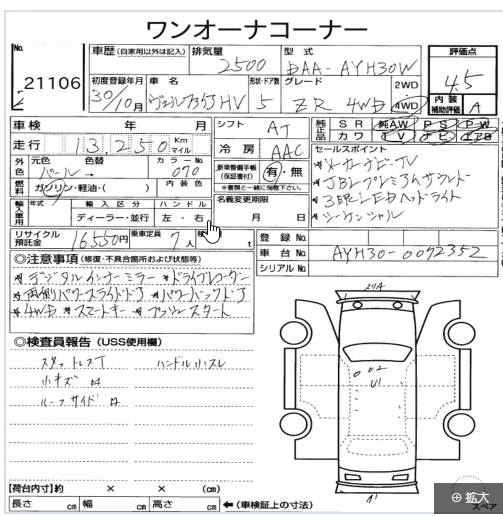 ワンオーナコーナー
No.
21106
車歴 (自家用以外は記入) 排気量 型式 評価点
2500 DAA-AYH30W 4.5
初度登録年月 車名 形状・ドア数 グレード 2WD 4WD
30/10月 ヴェルファイアHV 5 ZR 4WD
内装補助評価 A
車検 年 月 シフト AT
純正品 SR 純AW PS PW
カワ TV ナビ エアB
走行 13,250 Km マイル 冷房 AAC
セールスポイント
外色 元色 色替 カラーNo.
パール → 070
新車整備手帳(保証書付) 有・無
※書類と一緒に御願下さい。
メーカーナビTV
JBLプレミアムサウンド
3眼LEDヘッドライト
シーケンシャル
燃料 ガソリン・軽油・( ) 内装色
名義変更期限
月 日
輸入車用 年式 輸入区分 ハンドル
ディーラー・並行 左・右
リサイクル預託金 16550円 乗車定員 7人 t
登録No.
車台No. AYH30-0072352
シリアルNo.
◎注意事項 (修復・不具合箇所および状態等)
★デジタルインナーミラー ★ドライブレコーダー
★両側パワースライドドア ★パワーバックドア
★4WD ★スマートキー ★プッシュスタート
◎検査員報告 (USS使用欄)
スタッドレスT ハンドル小スレ
小キズ
ルーフサイド
U2
U1
A1
【荷台内寸】約 × × (cm)
長さ cm 幅 cm 高さ cm ←(車検証上の寸法)
スペア
拡大